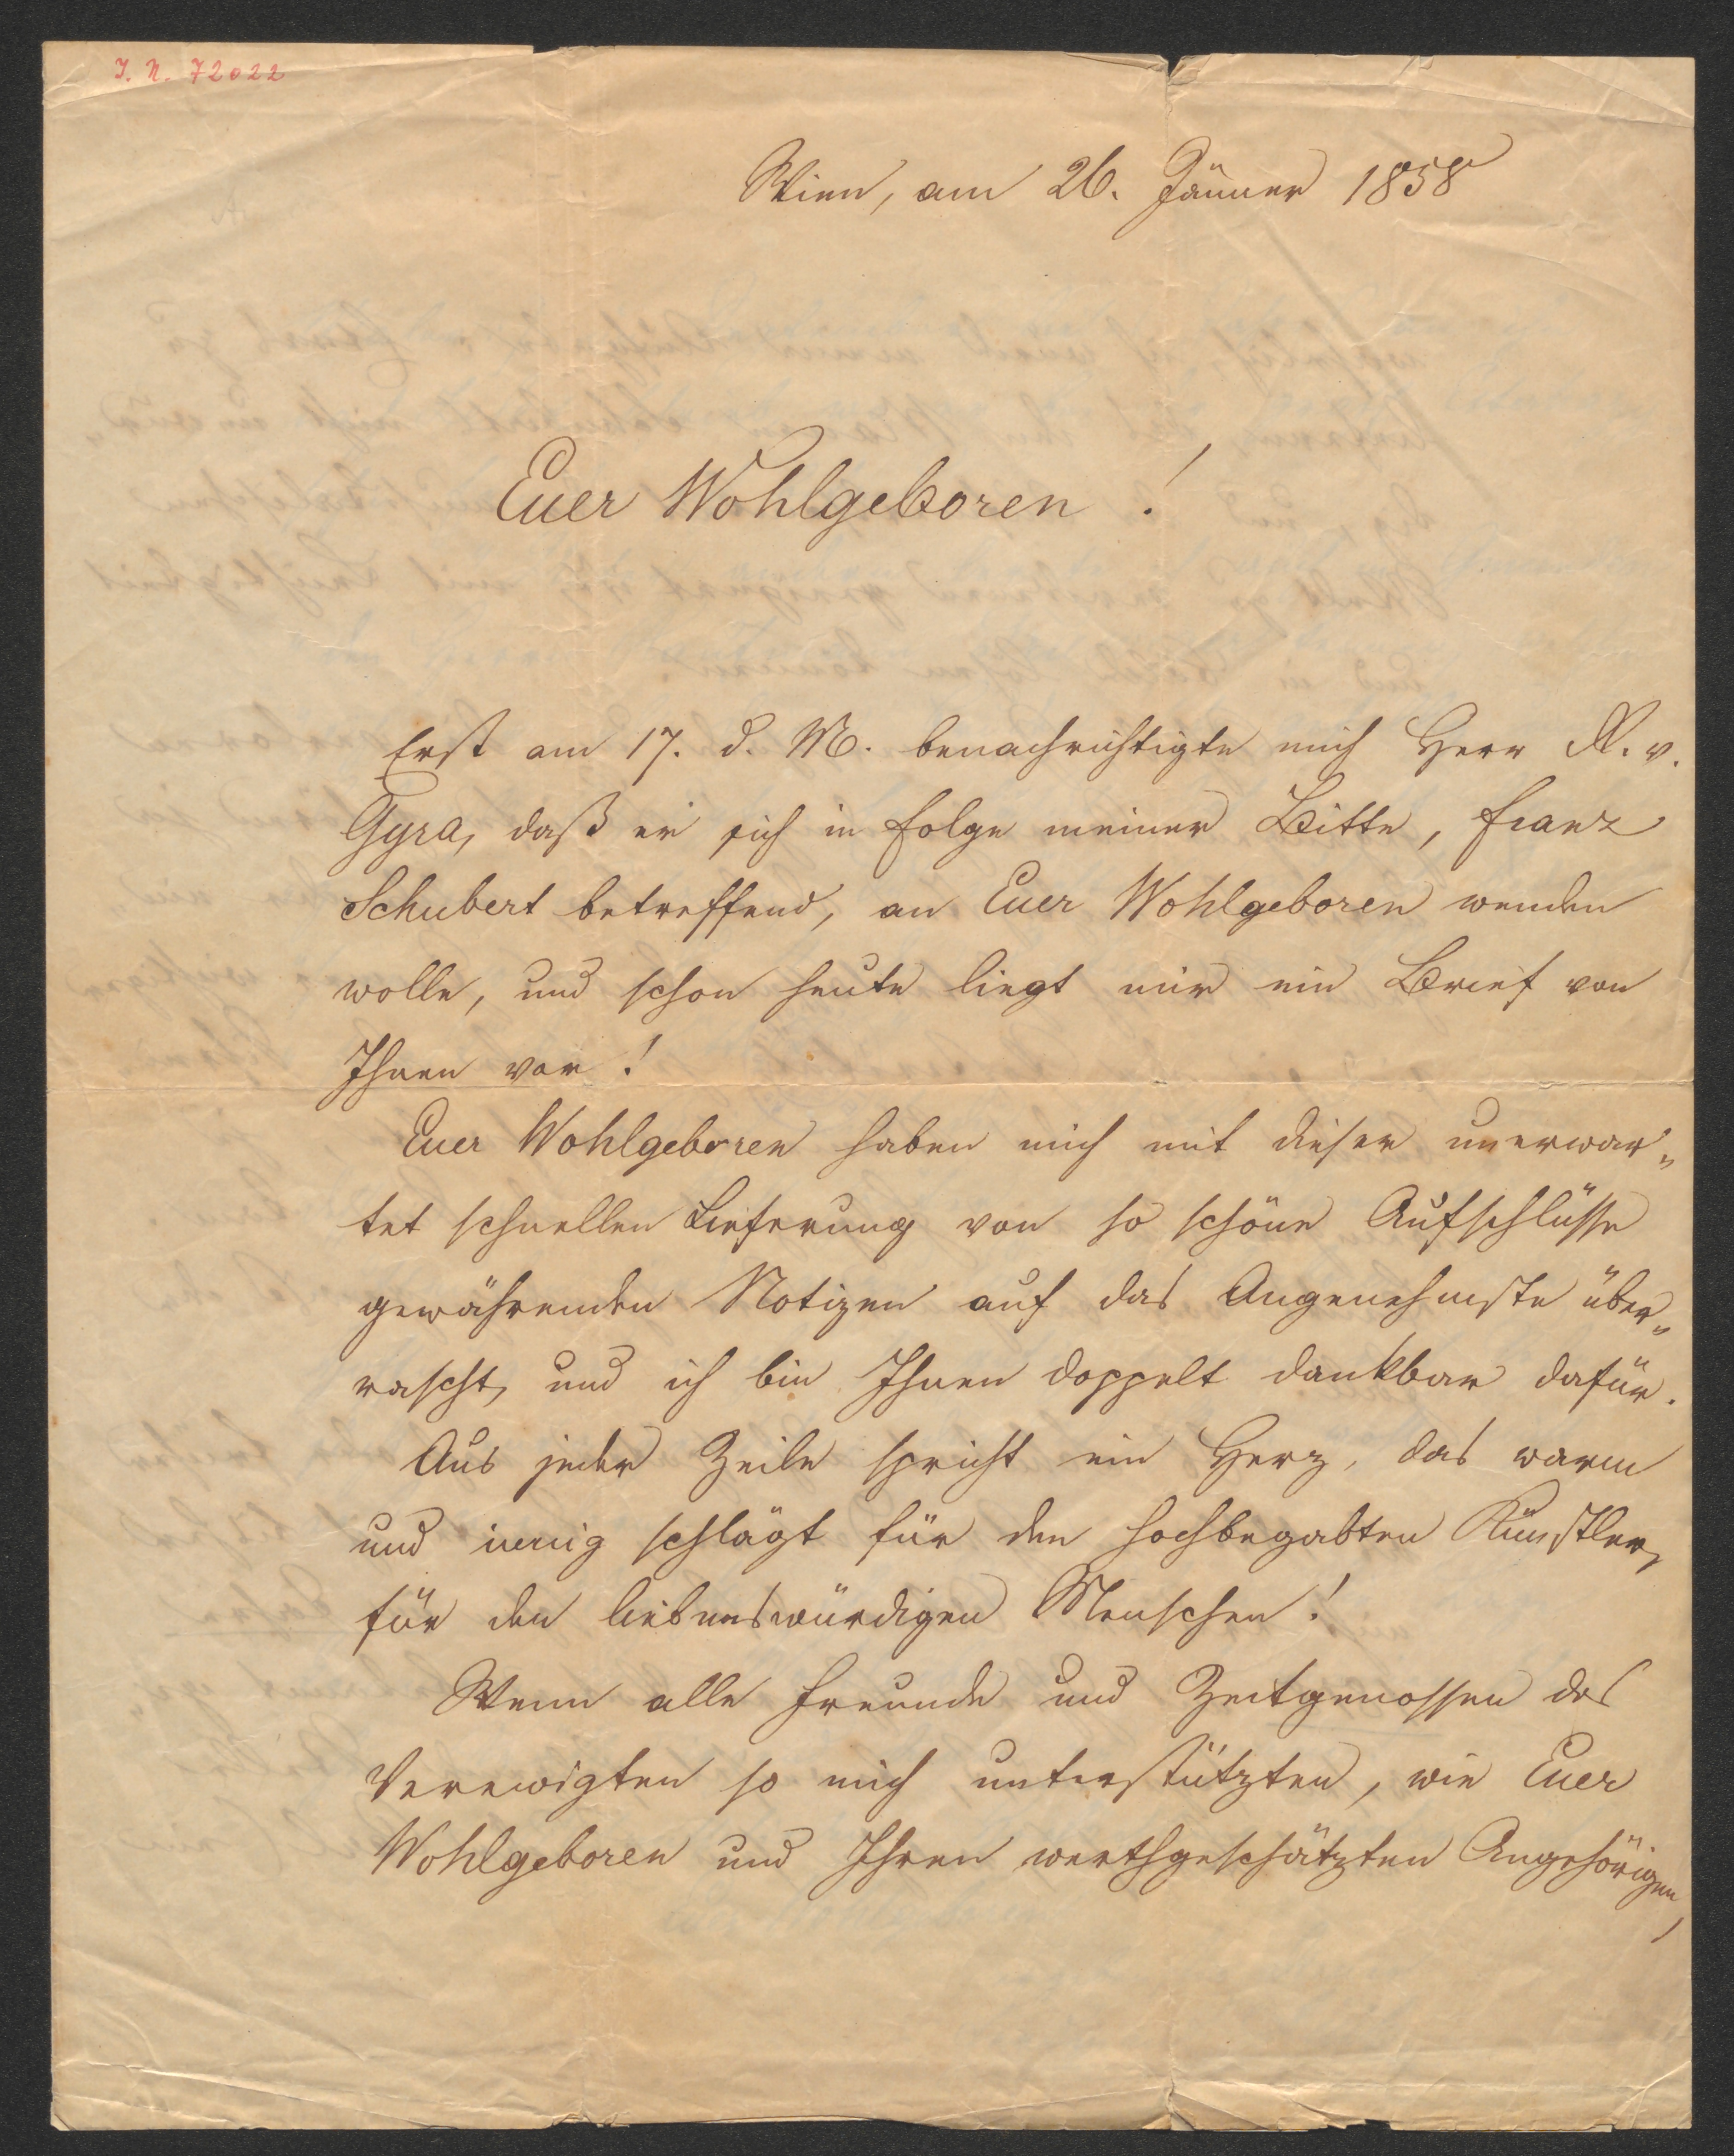 I. N. 72022
Wien, am 26. Jänner 1858
Euer Wohlgeboren !
Erst am 17. d. M. benachrichtigte mich Herr R. v.
Gyra, daß er sich in Folge meiner Bitte, Franz
Schubert betreffend, an Euer Wohlgeboren wenden
wolle, und schon heute liegt mir ein Brief von
Ihnen vor !
Euer Wohlgeboren haben mich mit dieser unerwar„
tet schnellen Lieferung von so schöne Aufschlüsse
gewährenden Notizen auf das Angenehmste über„
rascht, und ich bin Ihnen doppelt dankbar dafür.
Aus jeder Zeile spricht ein Herz, das warm
und innig schlägt für den hochbegabten Künstler,
für den liebenswürdigen Menschen !
Wenn alle Freunde und Zeitgenossen des
Verewigten so mich unterstützten, wie Euer
Wohlgeboren und Ihren werthgeschätzten Angehörigen,